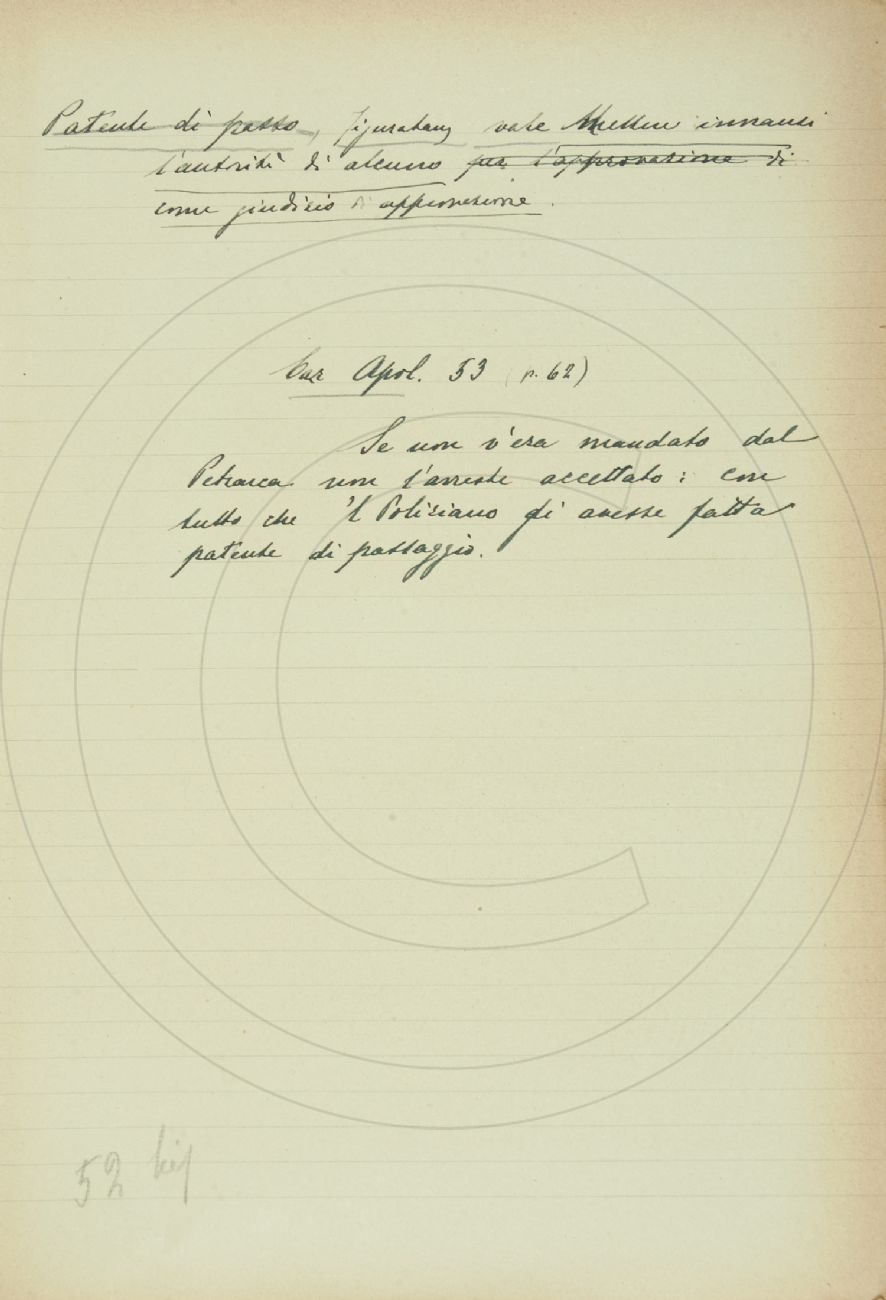 Patente di passo, figuratam vale Mettere innanzi
l'autorità di alcuno per l'approvazione di
come giudizio di approvazione.
Car Apol. 53 (p. 62)
Se non v'era mandato dal
Petrarca non l'avreste accettato: con
tutto che 'l Poliziano gli avesse fatta
patente di passaggio.
52 bis